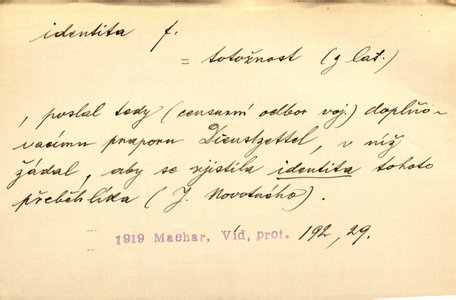 identita f.
= totožnost (z lat.)
, poslal tedy (censurní odbor voj.) doplňo-
vacímu praporu Dienstzettel, v níž
žádal, aby se zjistila identita tohoto
přeběhlíka (J. Novotného).
1919 Machar, Víd, prot. 192, 29.